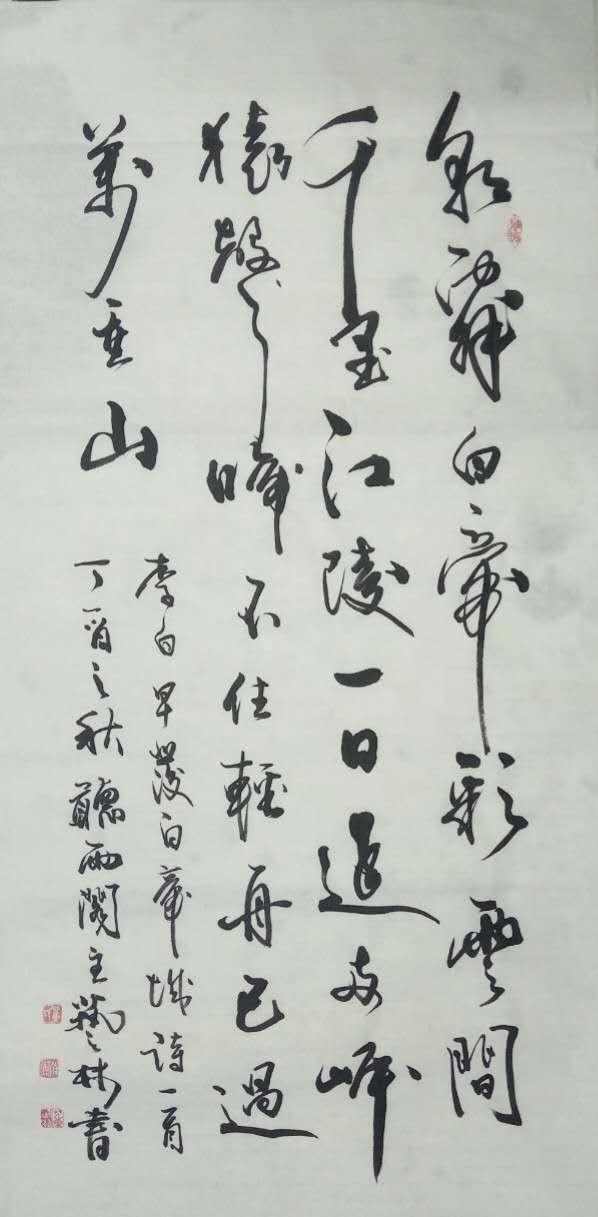 朝辭白帝彩雲間
千里江陵一日還兩岸
猿聲啼不住輕舟已過
萬重山
李白早發白帝城詩一首
丁酉之秋聽雨閣主林書